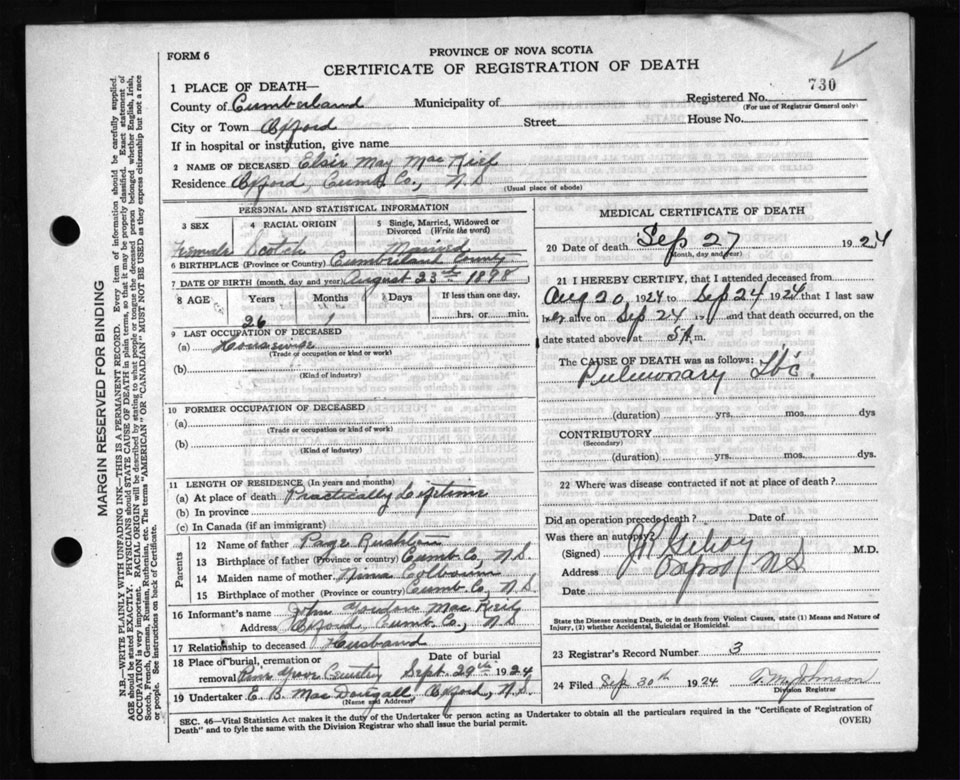 FORM 6
PROVINCE OF NOVA SCOTIA
CERTIFICATE OF REGISTRATION OF DEATH
730
1 PLACE OF DEATH—
Registered No.
(For use of Registrar General only)
County of Cumberland Municipality of
City or Town Oxford Street House No.
If in hospital or institution, give name
2 NAME OF DECEASED Elsie May Mac
Residence Oxford, Cumb. Co., N.S
(Usual place of abode)
PERSONAL AND STATISTICAL INFORMATION
3 SEX 4 RACIAL ORIGIN 5 Single, Married, Widowed or Divorced (Write the word)
Female Scotch Married
6 BIRTHPLACE (Province or Country) Cumberland County
7 DATE OF BIRTH (month, day and year) August 23rd 1898
8 AGE Years Months Days If less than one day,
26 1 hrs. or min.
9 LAST OCCUPATION OF DECEASED
(a) Housewife
(Trade or occupation or kind of work)
(b)
(Kind of industry)
10 FORMER OCCUPATION OF DECEASED
(a)
(Trade or occupation or kind of work)
(b)
(Kind of industry)
11 LENGTH OF RESIDENCE (In years and months)
(a) At place of death Practically Lifetime
(b) In province
(c) In Canada (if an immigrant)
Parents
12 Name of father Page Rushton
13 Birthplace of father (Province or country) Cumb. Co, N.S.
14 Maiden name of mother. Nina
15 Birthplace of mother (Province or country) Cumb. Co, N.S.
16 Informant's name John Gordon Mac
Address Oxford, Cumb. Co., N.S
17 Relationship to deceased Husband
18 Place of burial, cremation or removal Date of burial
Pine Grove Cemetery Sept. 29th 1924
19 Undertaker E. B. Mac Dougall, Oxford, N.S.
(Name and Address)
MEDICAL CERTIFICATE OF DEATH
20 Date of death Sep 27 1924
(Month, day and year)
21 I HEREBY CERTIFY, that I attended deceased from
Aug 20, 1924 to Sep 24 1924 that I last saw
her alive on Sep 24 19 and that death occurred, on
date stated above at 5 A. m.
The CAUSE OF DEATH was as follows:
Pulmonary Tbc.
(duration) yrs. mos. dys
CONTRIBUTORY
(Secondary)
(duration) yrs. mos. dys.
22 Where was disease contracted if not at place of death?
Did an operation precede death? Date of
Was there an autopsy?
(Signed) M.D.
Address Oxford N S
Date
State the Disease causing Death, or in death from Violent Causes, state (1) Means and Nature of
Injury, (2) whether Accidental, Suicidal or Homicidal.
23 Registrar's Record Number 3
24 Filed Sep 30th 1924 Johnson
Division Registrar
SEC. 46—Vital Statistics Act makes it the duty of the Undertaker or person acting as Undertaker to obtain all the particulars required in the "Certificate of Registration of
Death" and to fyle the same with the Division Registrar who shall issue the burial permit.
(OVER)
MARGIN RESERVED FOR BINDING
N.B.—WRITE PLAINLY WITH UNFADING INK—THIS IS A PERMANENT RECORD. Every item of information should be carefully supplied.
AGE should be stated EXACTLY. PHYSICIANS should STATE CAUSE OF DEATH in plain terms, so that it may be properly classified. Exact statement of
OCCUPATION is very important. RACIAL ORIGIN will be described by stating to what people or tongue the deceased person belonged whether English, Irish,
Scotch, French, German, Russian, Ruthenian, etc. The terms "AMERICAN" OR "CANADIAN" MUST NOT BE USED as they express citizenship but not a race
or people. See instructions on back of Certificate.